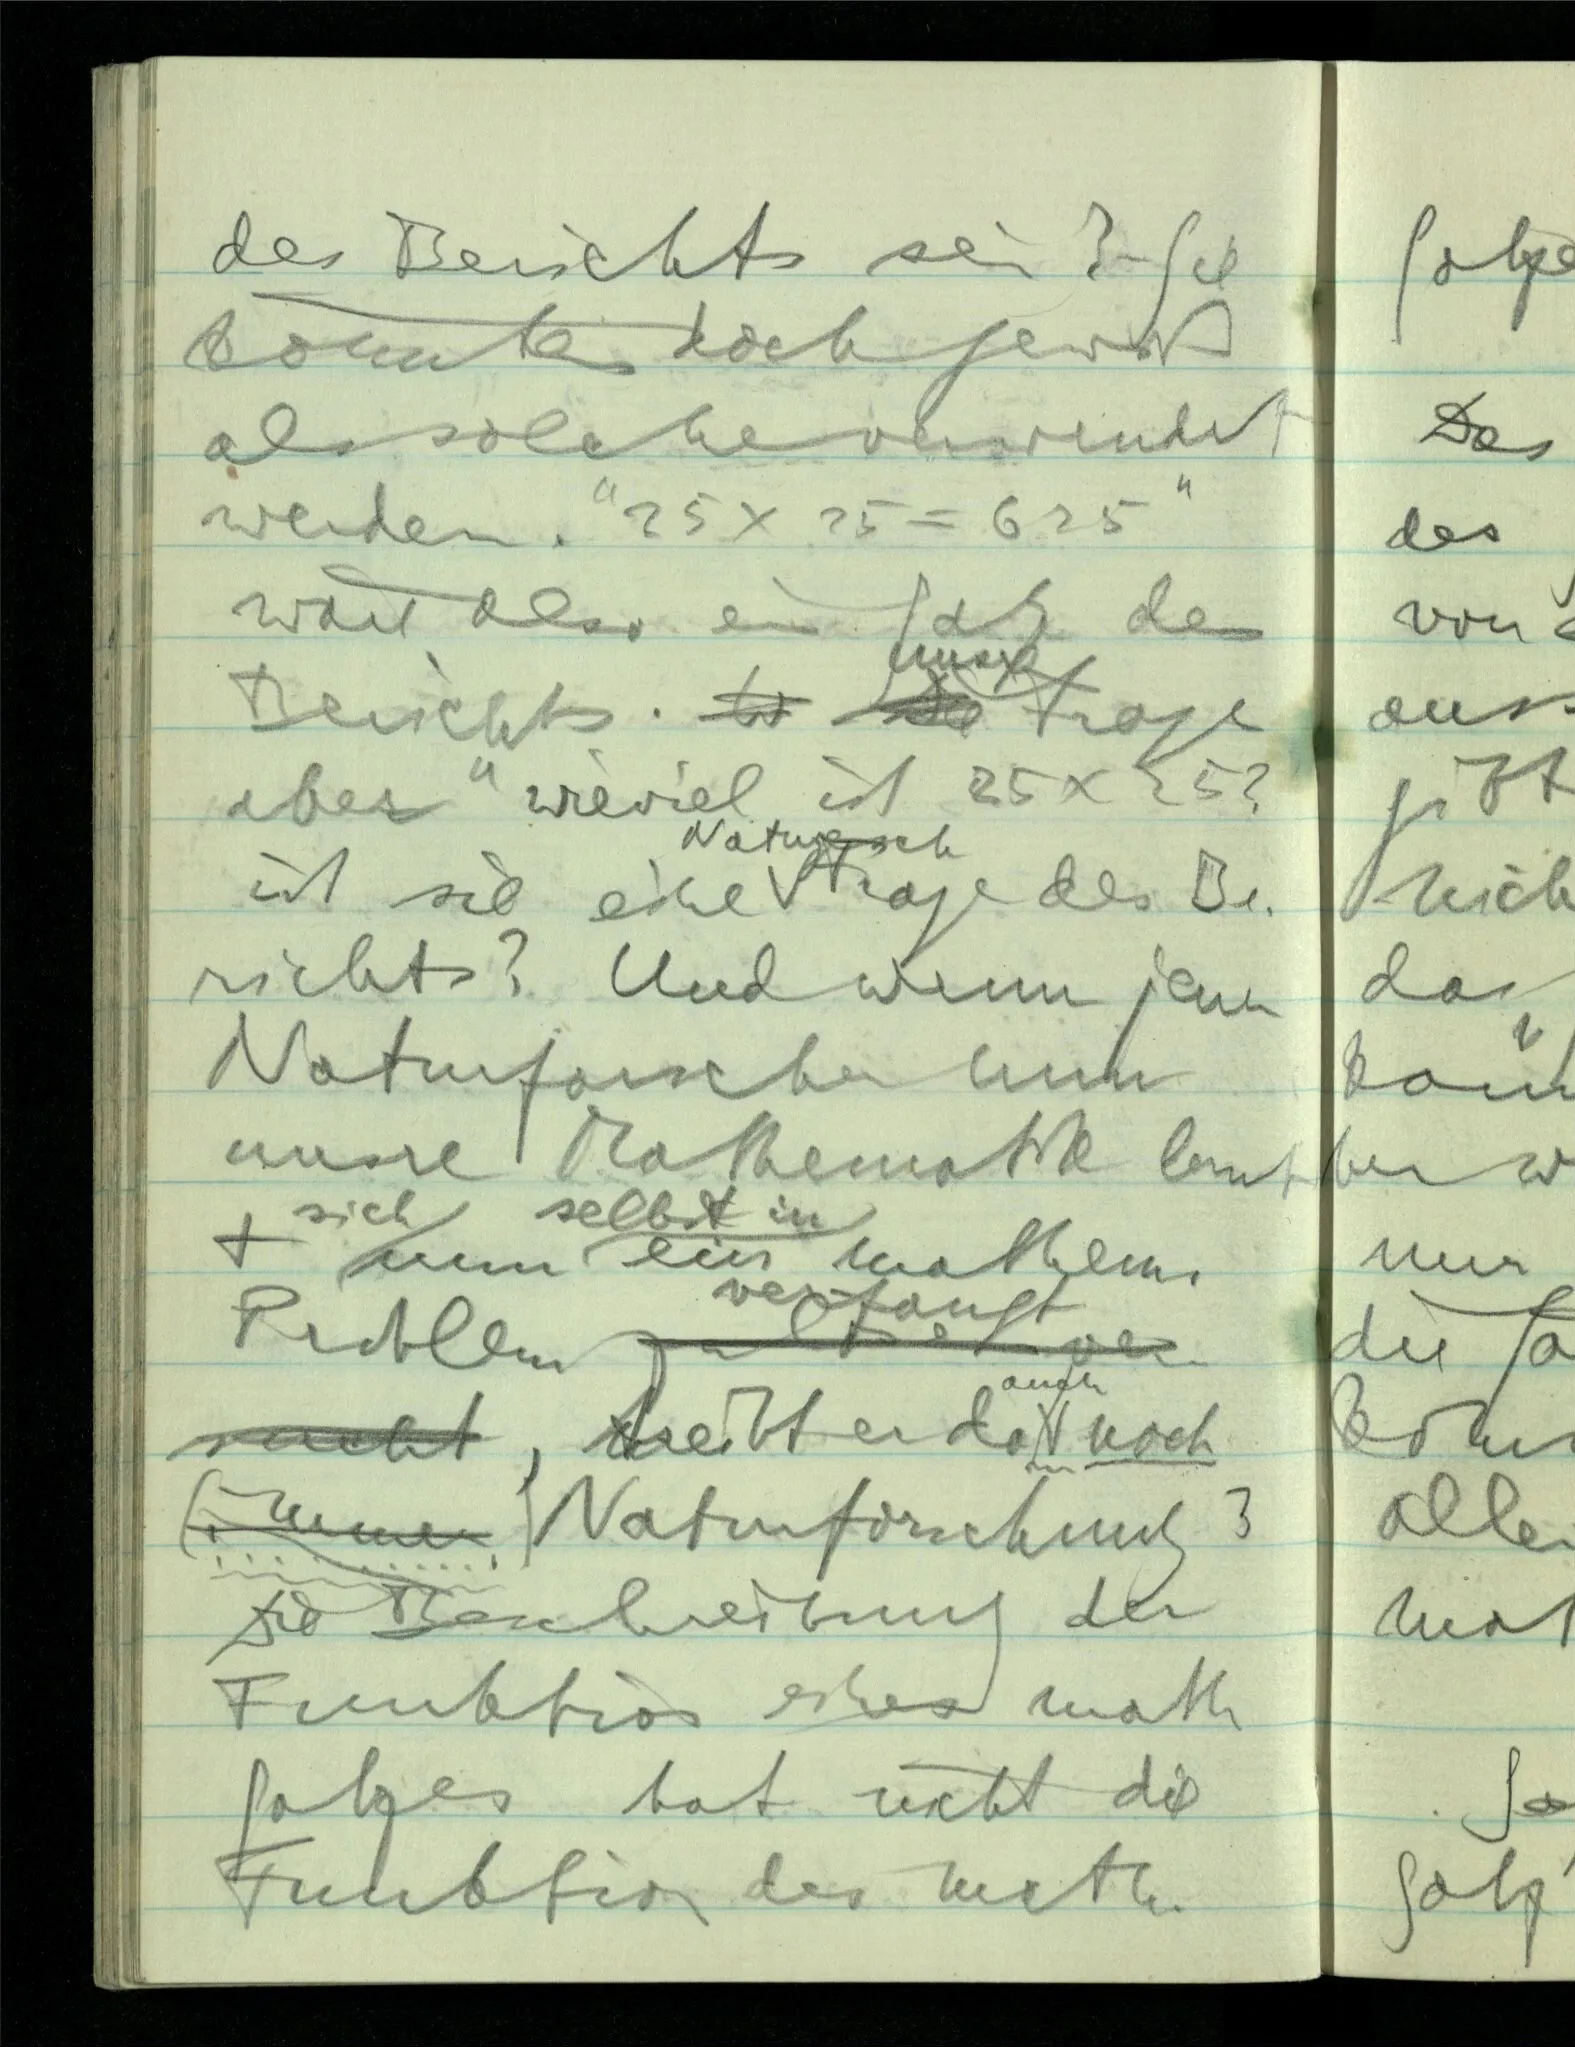 des Berichts sein? Sie
könnten doch gewiß
als solche verwendet
werden. "25 × 25 = 625"
wäre also ein Satz des
Berichts. Ist die unsre Frage
aber "wieviel ist 25 × 25?
ist sie eine Naturgesch Frage des Be-
richts? Und wenn jener
Naturforscher nun
unsre Mathematik lernt
+ sich nun selbst in ein mathem.
Problem verfängt
sucht, treibt er da auch noch
(immer) Naturforschung?
Die Beschreibung der
Funktion eines math
Satzes hat nicht die
Funktion des math.
Satze
Das
des
von
auss
gibt
nich
das
kön
ber w
nur
die Sa
könn
allen
mat
Satz